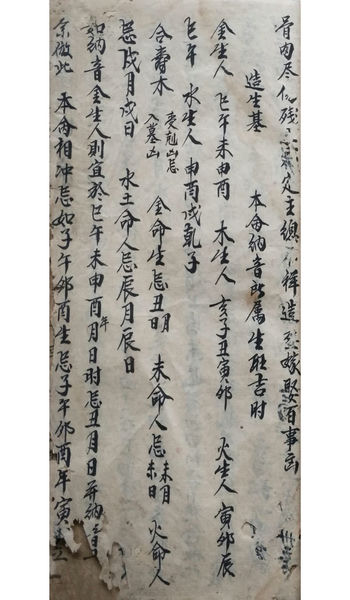 骨肉尽傷残 定主總不祥造葬嫁娶百事凶
造生基 本命納音所屬生旺吉时
金生人 巳午未申酉 木生人 亥子丑寅卯 火生人 寅卯辰
巳午 水生人 申酉戌亥子
合壽木 夾剋凶忌入墓凶 金命生忌丑月丑日 木命人忌未月未日 火命人
忌戌月戌日 水土命人忌辰月辰日
如納音金生人則宜於巳午未申酉年月日时忌丑月日葬納
余倣此 本命相冲忌如子午卯酉生忌子午卯酉年寅